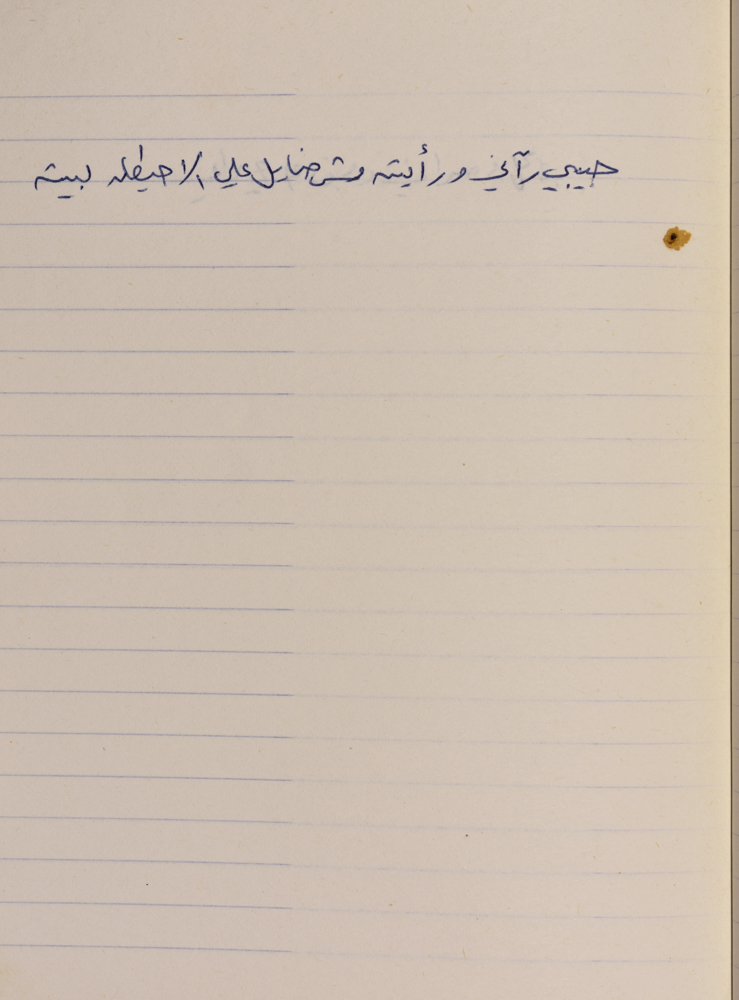 حبيبي رآني ورأيته ومش ضايل علي إلا حيطله لبيته